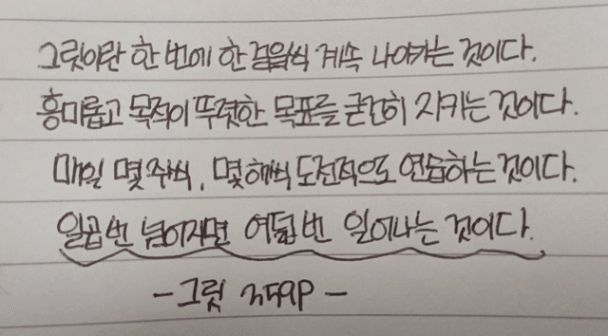 그릿이란 한 번에 한 걸음씩 계속 나아가는 것이다.
흥미롭고 목적이 뚜렷한 목표를 굳건히 지키는 것이다.
매일 몇 주씩, 몇 해씩 도전적으로 연습하는 것이다.
일곱 번 넘어지면 여덟 번 일어나는 것이다.
- 그릿 359P -